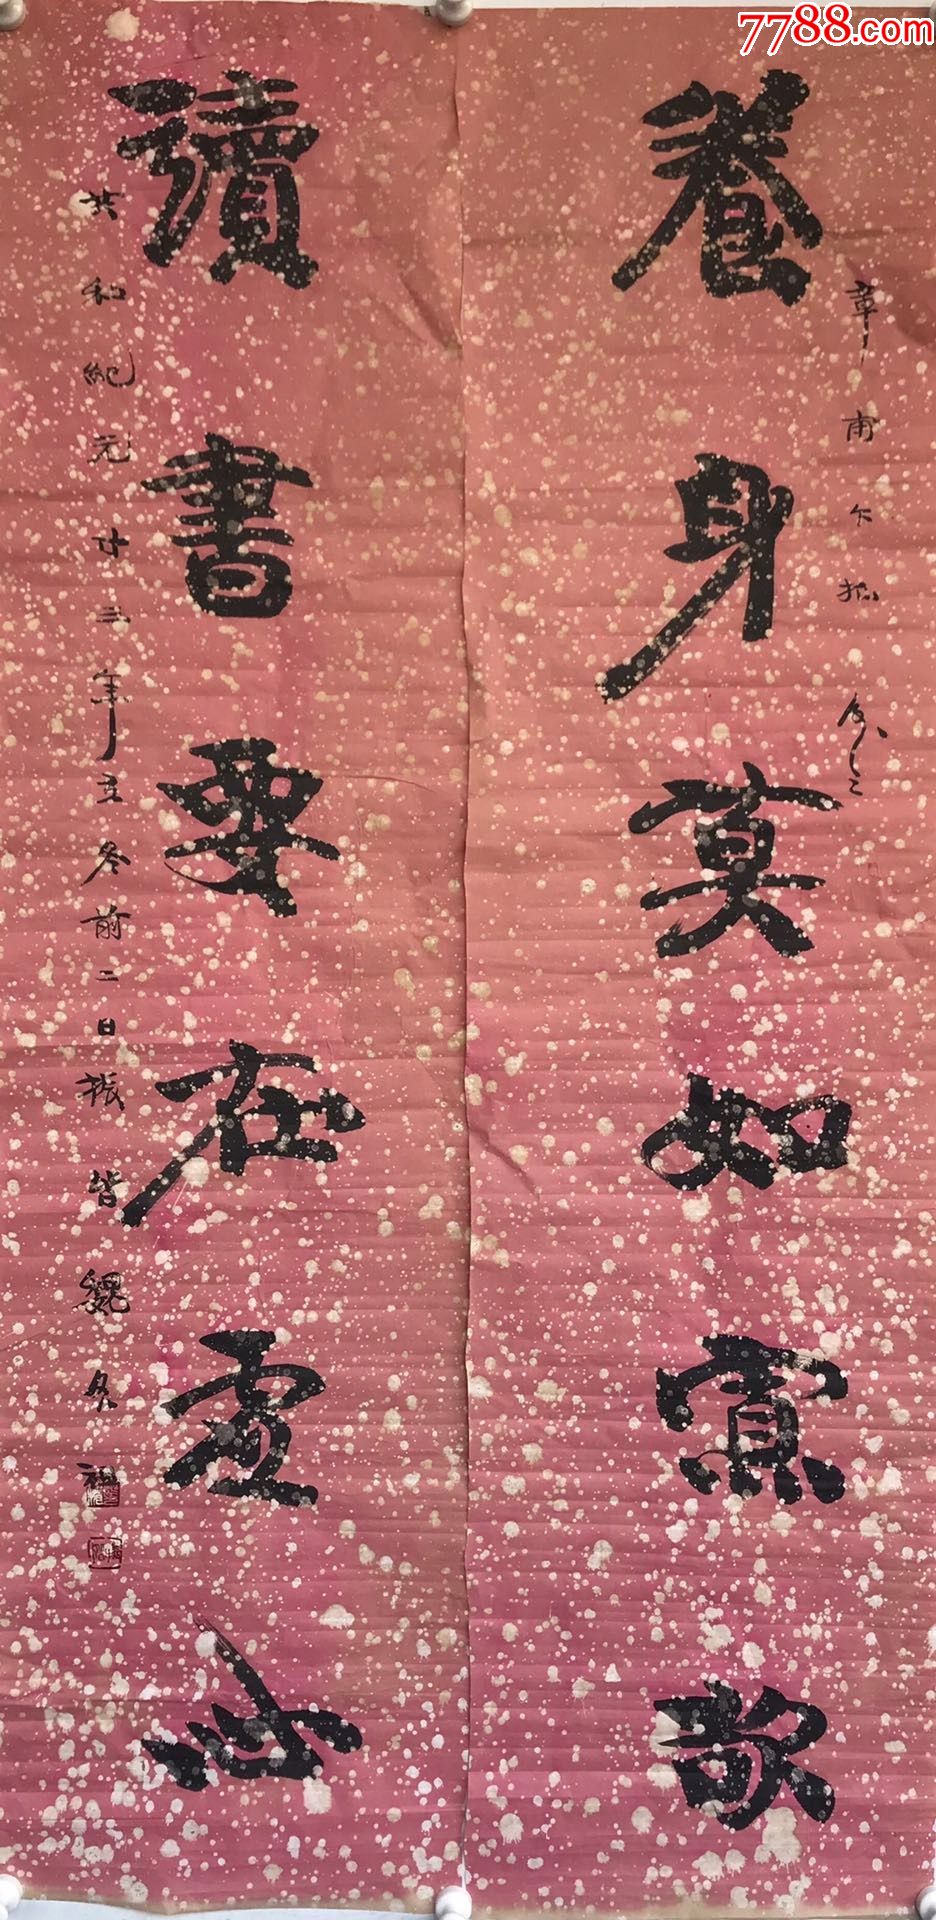 7788.com
章甫
養身莫如寡欲
讀書要在虛心
共和紀元廿三年立冬前二日振皆魏